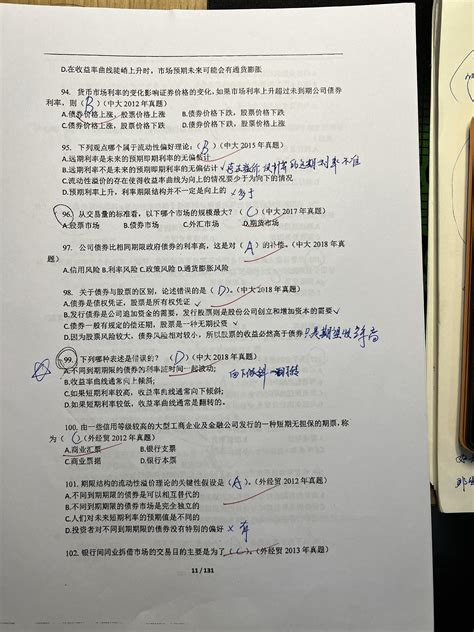 D.在收益率曲线陡峭上升时，市场预期未来可能会有通货膨胀
94. 货币市场利率的变化影响证券价格的变化,如果市场利率上升超过未到期公司债券
利率，则（ B ）(中大 2012 年真题)
A.债券价格上涨，股票价格上涨 B.债券价格下跌，股票价格下跌
C.债券价格上涨，股票价格下跌 D.债券价格下跌，股票价格上涨
95. 下列观点哪个属于流动性偏好理论:（ B ）(中大 2015 年真题)
A.远期利率是未来的预期即期利率的无偏估计
B.远期利率不是未来的预期即期利率的无偏估计 ✓
C.流动性溢价的存在使得收益率曲线为向上的情况要少于为向下的情况
D.预期利率上升，利率期限结构并不一定是向上的 ×
96. 从交易量的标准看，以下哪个市场的规模最大？（ C ）(中大 2017 年真题)
A.股票市场 B.债券市场 C.外汇市场 D.期货市场
97. 公司债券比相同期限政府债券的利率高，这是对（ A ）的补偿。(中大 2018 年真
题)
A.信用风险 B.利率风险 C.政策风险 D.通货膨胀风险
98. 关于债券与股票的区别，论述错误的是（ D ）。(中大 2018 年真题)
A.债券是债权凭证，股票是所有权凭证 ✓
B.发行债券是公司追加资金的需要，发行股票则是股份公司创立和增加资本的需要 ✓
C.债券一般有规定的偿还期，股票是一种无期投资 ✓
D.因为股票风险较大，债券风险相对较小，所以股票的收益必然高于债券
99. 下列哪种表述是错误的？（ D ）(中大 2018 年真题)
A.不同到期期限的债券的利率随时间一起波动;
B.收益率曲线通常向上倾斜;
C.如果短期利率较高，收益率曲线通常向下倾斜;
D.如果短期利率较低，收益率曲线通常是翻转的。
100. 由一些信用等级较高的大型工商企业及金融公司发行的一种短期无担保的期票，称
为（ C ）(外经贸 2012 年真题)
A.商业汇票 B.银行支票
C.商业票据 D.银行本票
101. 期限结构的流动性溢价理论的关键性假设是（ A ）。(外经贸 2012 年真题)
A.不同到期期限的债券是可以相互替代的
B.不同到期期限的债券市场是完全独立的
C.人们对未来短期利率的预期值是不同的
D.投资者对不同到期期限的债券没有特别的偏好 × 有
102. 银行间同业拆借市场的交易目的主要是为了（ C ）。(外经贸 2013 年真题)
11 / 131